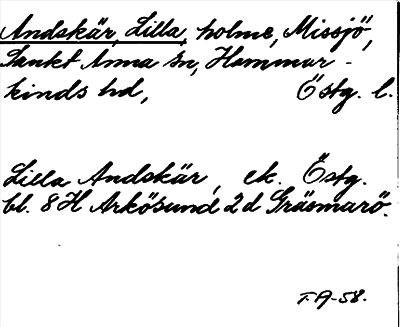 Andskär, Lilla, holme, Missjö,
Sankt Anna sn, Hammar-
kinds hd, Östg. l.
Lilla Andskär, ek. Östg.
bl. 8H Arkösund 2d Gräsmarö.
T.A-58.